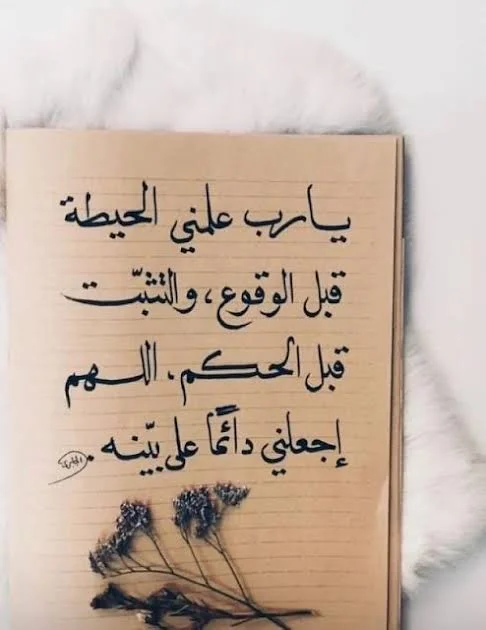 يارب علمني الحيطة
قبل الوقوع، والتثبّت
قبل الحكم. اللهم
إجعلني دائمًا على بيّنه.